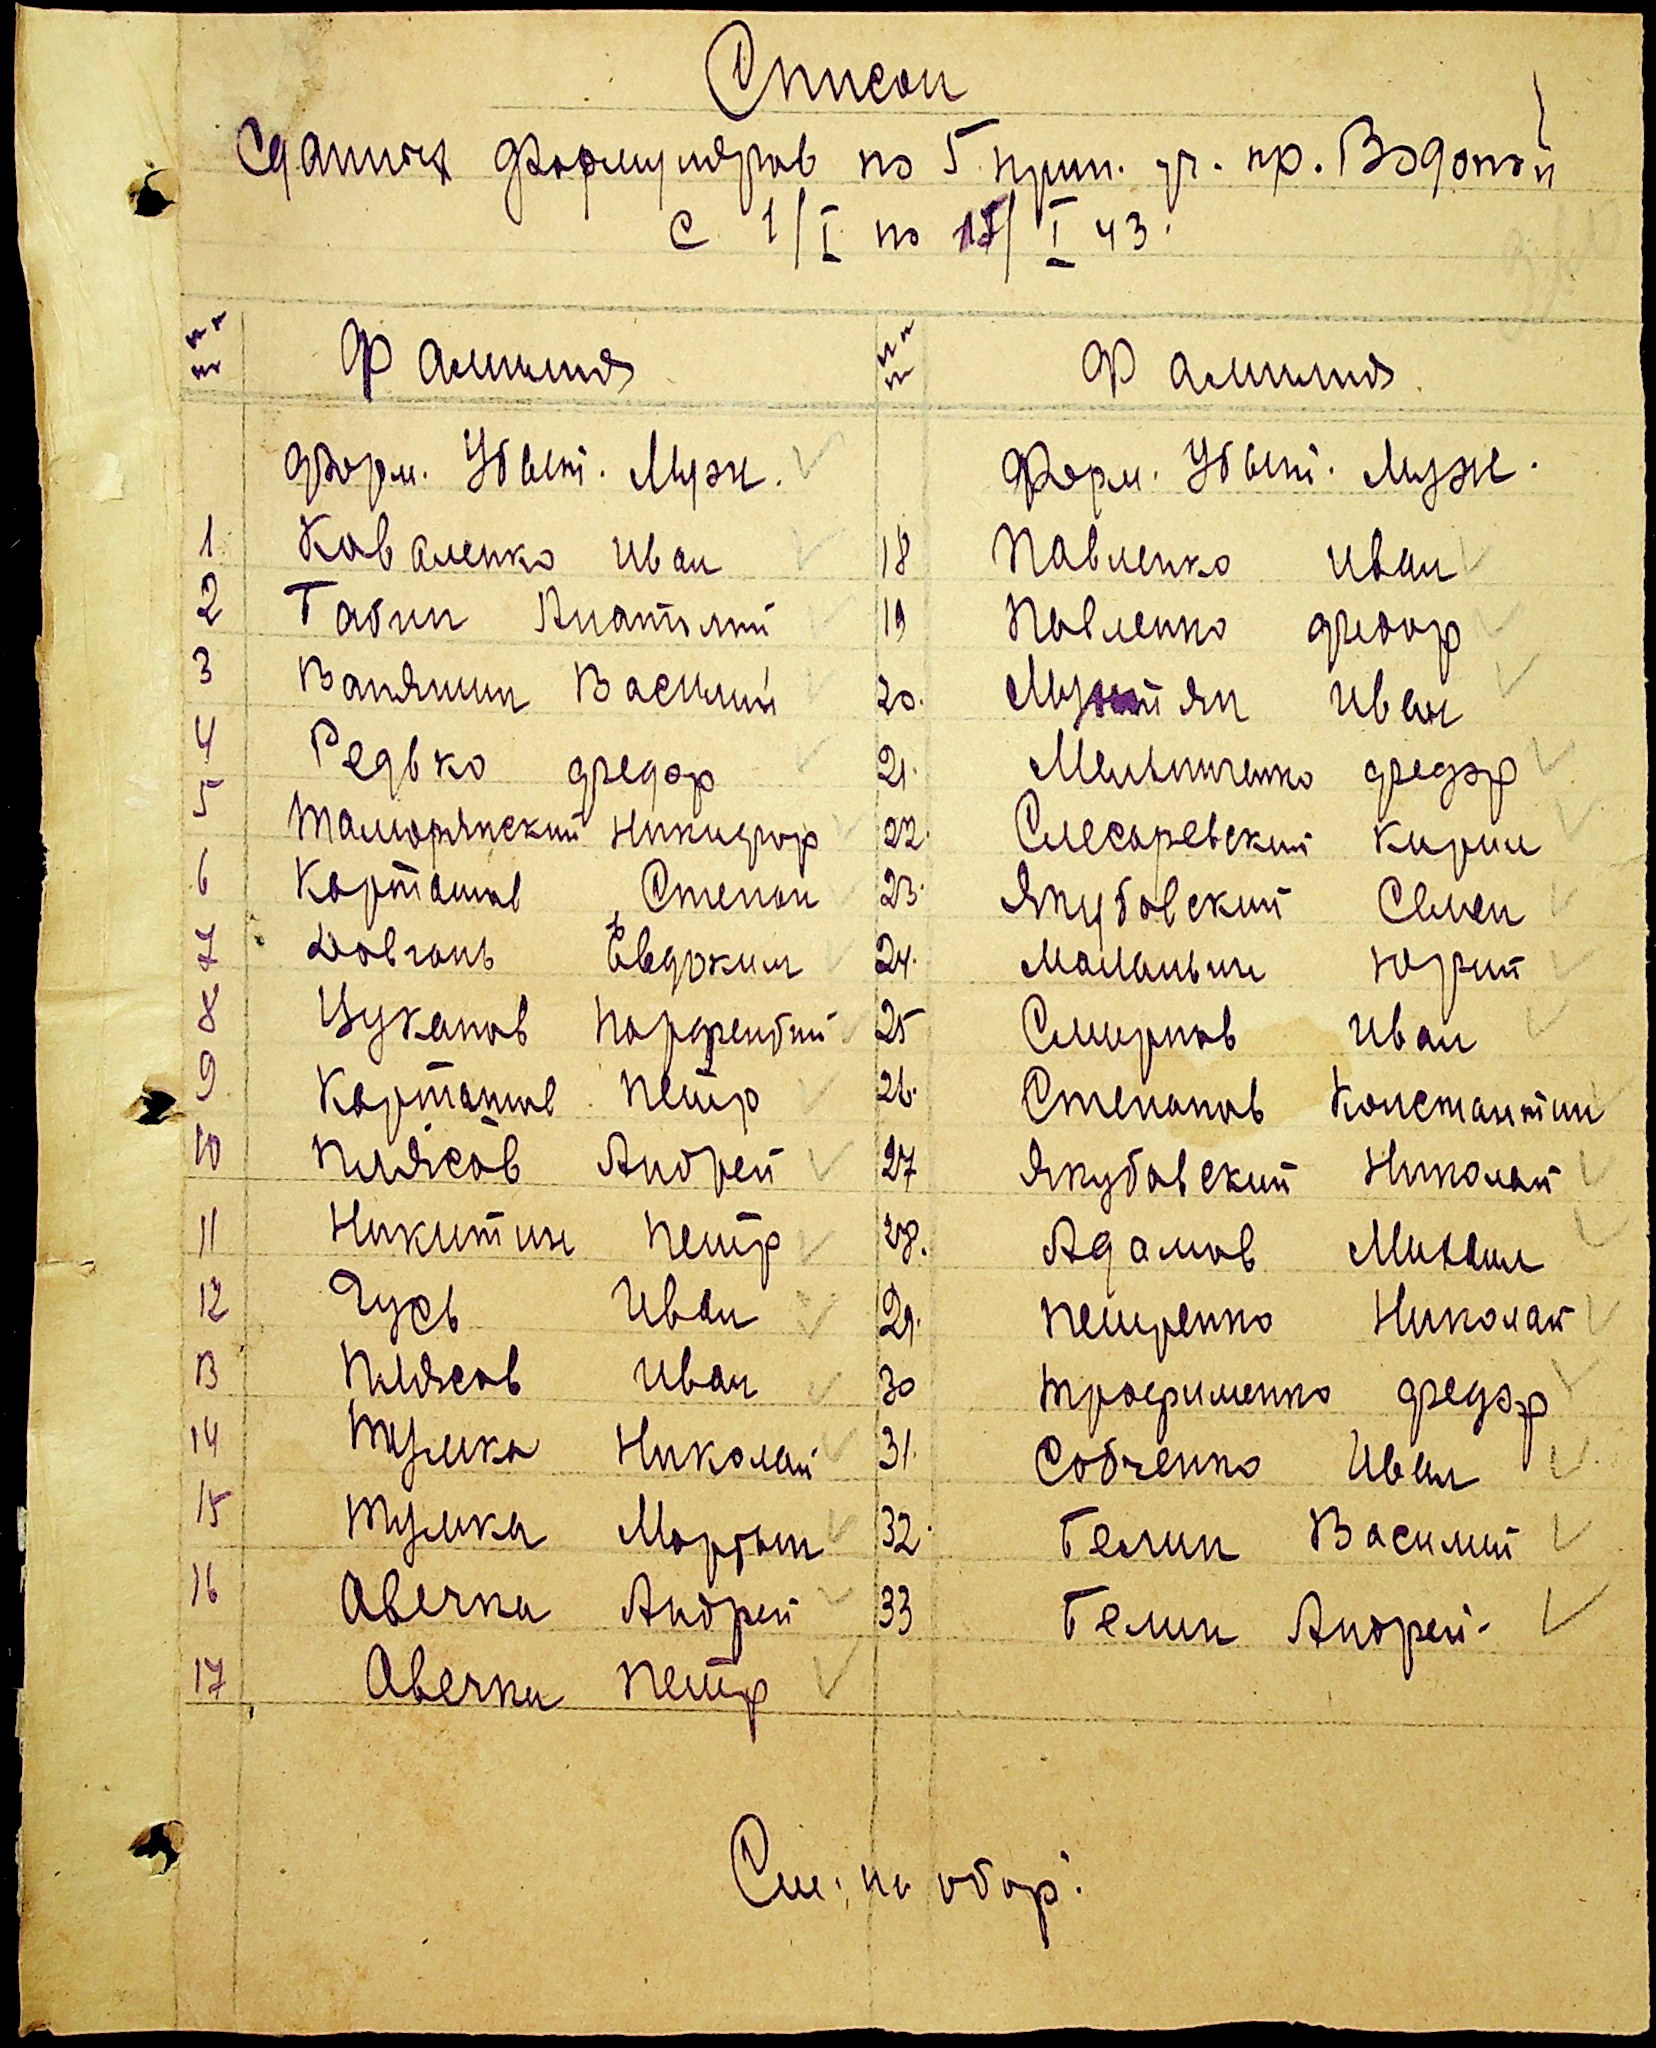 Список
Сданных формуляров по 5 прип. уч. пр. Водопой
с 1/I по 15/I 43.
№№ пп Фамилия №№ пп Фамилия
Форм. Убыт. Муж. Форм. Убыт. Муж.
1 Коваленко Иван 18 Павленко Иван
2 Бабин Анатолий 19 Павленко Федор
3 Ванякин Василий 20. Иван
4 Редько Федор 21. Мельниченко Федор
5 Никифор 22. Слесаревский Кирил
6 Карташов Степан 23. Якубовский Семен
7 Довгань Евдоким 24. Маланьин Юрий
8 Цуканов Парфентий 25 Смирнов Иван
9 Карташов Петр 26. Степанов Константин
10 Плясов Андрей 27 Якубовский Николай
11 Никитин Петр 28. Адамов Михаил
12 Гусь Иван 29. Петренко Николай
13 Плясов Иван 30 Трофименко Федор
14 Тулика Николай 31. Собченко Иван
15 Тулика Мартын 32. Белин Василий
16 Авечка Андрей 33 Белин Андрей.
17 Авечка Петр
См. на обор.